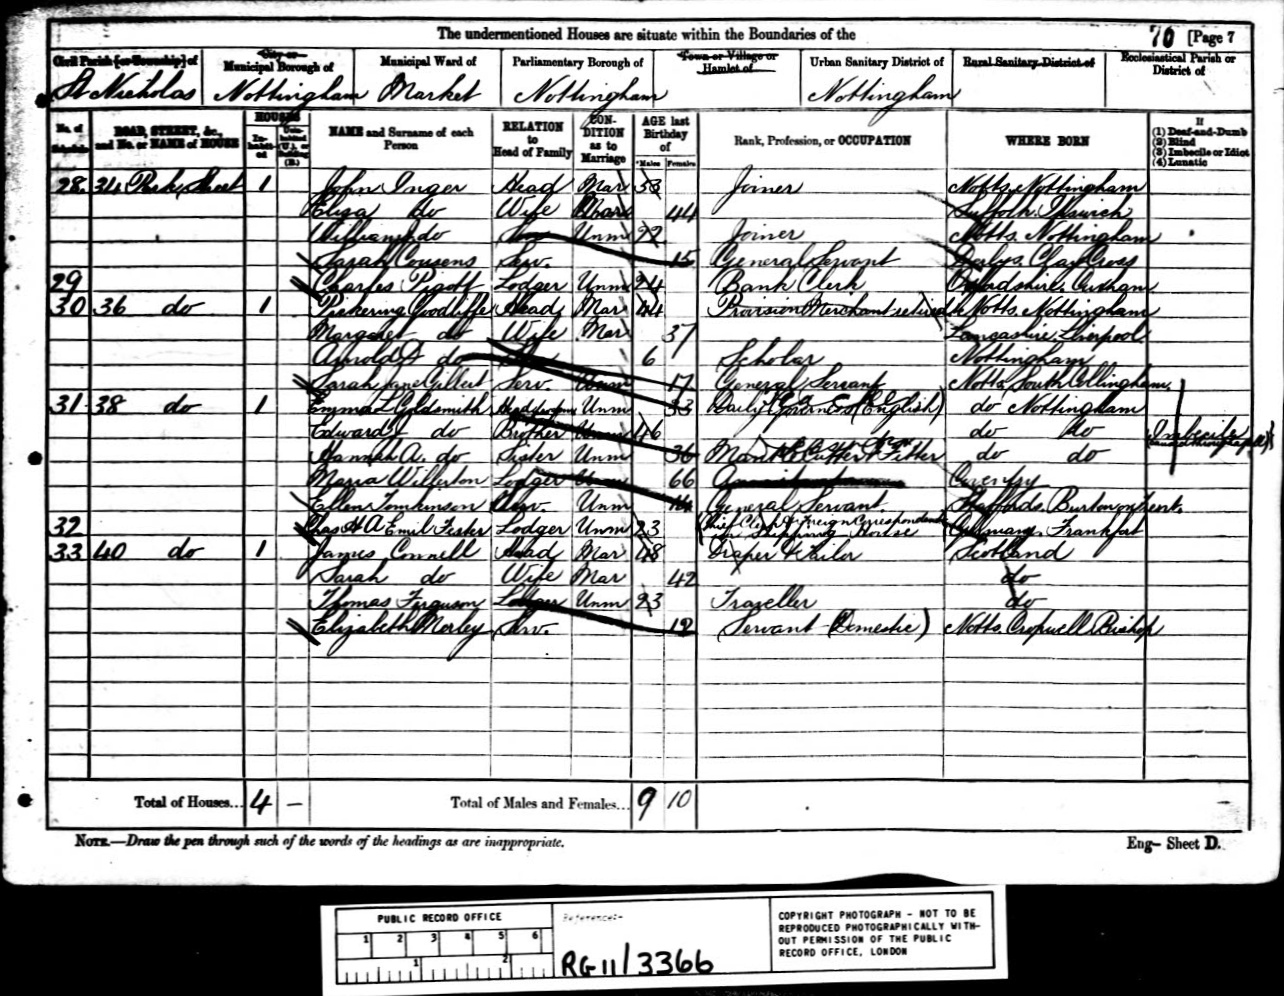 The undermentioned Houses are situate within the Boundaries of the 70 [Page 7
Civil Parish [or Township] of City or Municipal Borough of Municipal Ward of Parliamentary Borough of Town or Village or Hamlet of Urban Sanitary District of Rural Sanitary District of Ecclesiastical Parish or District of
St Nicholas Nottingham Market Nottingham Nottingham
No. of Schedule ROAD, STREET, &c., and No. or NAME of HOUSE HOUSES Inhabited Uninhabited (U.), or Building (B.) NAME and Surname of each Person RELATION to Head of Family CONDITION as to Marriage AGE last Birthday of Males Females Rank, Profession, or OCCUPATION WHERE BORN If (1) Deaf-and-Dumb (2) Blind (3) Imbecile or Idiot (4) Lunatic
28 34 Park Street 1 John Inger Head Mar 53 Joiner Notts. Nottingham
Eliza do Wife Mar 44 Suffolk Ipswich
William do Son Unm 22 Joiner Notts. Nottingham
Sarah Cousens Serv. 15 General Servant Derbys. Clay Cross
29 Charles Pigott Lodger Unm 24 Bank Clerk
30 36 do 1 Pickering Goodliffe Head Mar 44 Provision Merchant retired Notts. Nottingham
Margaret do Wife Mar 37 Lancashire Liverpool
Arnold A do Son 6 Scholar Nottingham
Sarah Jane Gilbert Serv. Unm 17 General Servant Notts South Collingham
31 38 do 1 Emma L Goldsmith Head Unm 33 Daily Governess (English) do Nottingham
Edward do Brother Unm 46 do do Imbecile
Hannah A. do Sister Unm 36 Mantle Cutter & Fitter do do
Maria Willerton Lodger Unm 66 Coventry
Ellen Tomkinson Serv. Unm General Servant Staffords. Burton on Trent
32 Chas H A Emil Fester Lodger Unm 23 (Chief Clerk & Foreign Correspondent in Shipping House Germany. Frankfort
33 40 do 1 James Connell Head Mar 48 Draper & Tailor Scotland
Sarah do Wife Mar 42 do
Thomas Ferguson Lodger Unm 23 Traveller do
Elizabeth Morley Serv. 12 Servant (Domestic) Notts. Cropwell Bishop
Total of Houses... 4 — Total of Males and Females... 9 10
NOTE.—Draw the pen through such of the words of the headings as are inappropriate. Eng- Sheet D.
PUBLIC RECORD OFFICE Reference:-
1 2 3 4 5 6
1 2
RG 11/3366
COPYRIGHT PHOTOGRAPH - NOT TO BE
REPRODUCED PHOTOGRAPHICALLY WITH-
OUT PERMISSION OF THE PUBLIC
RECORD OFFICE, LONDON